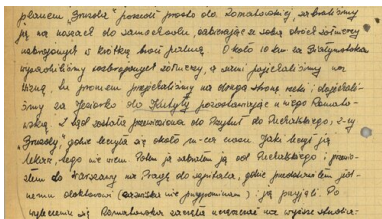 planem "Gruzda" poszedł prosto do Romatowskiej, zabraliśmy
ją na nosach do samochodu, zabierając ze sobą dwóch żołnierzy
uzbrojonych w krótką broń palną. Około 10 km za Białymstokiem
wypuściliśmy uzbrojonych żołnierzy, a sami pojechaliśmy na
. Tu promem przejechaliśmy na drugą stronę rzeki i dojechali-
śmy za Jeziorko do pozostawiając u niego Romato-
wską. Stąd została przewieziona do do Pieńskiego, z-cy
"Gruzdy", gdzie leczyła się około m-ca czasu. Jaki leczył ją
lekarz, tego nie wiem. Potem ja zabrałem ją od Pieńskiego i przewio-
złem do Warszawy na Pragę do szpitala, gdzie przedstawiłem jed-
nemu doktorowi (nazwiska nie przypominam) i ją przyjęli. Po
wyleczeniu się Romatowska zaczęła uczęszczać na wyższe studia-